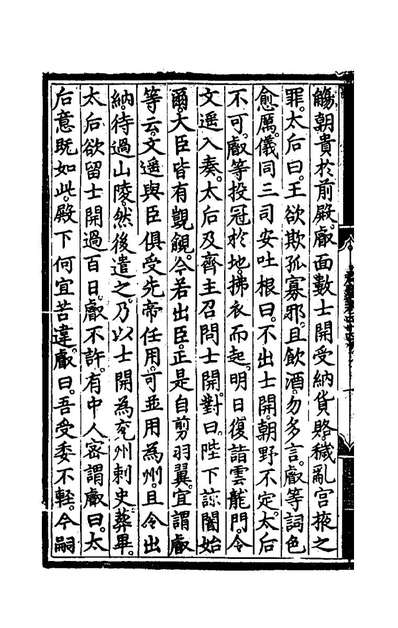 觴朝貴於前殿。叡面數士開受納貨賂。穢亂宫掖之
罪。太后曰。王欲欺孤寡邪。且飲酒。勿多言。叡等詞色
愈厲。儀同三司安吐根曰。不出士開。朝野不定。太后
不可。叡等投冠於地。拂衣而起。明日復詣雲龍門。令
文遥入奏。太后及齊主召問士開。對曰。陛下諒闇始
爾。大臣皆有覬覦。今若出臣。正是自剪羽翼。宜謂叡
等云。文遥與臣俱受先帝任用。可並用為州。且令出
納。待過山陵。然後遣之。乃以士開為兖州刺史。葬畢。
太后欲留士開過百日。叡不許。有中人密謂叡曰。太
后意既如此。殿下何宜苦違。叡曰。吾受委不輕。今嗣